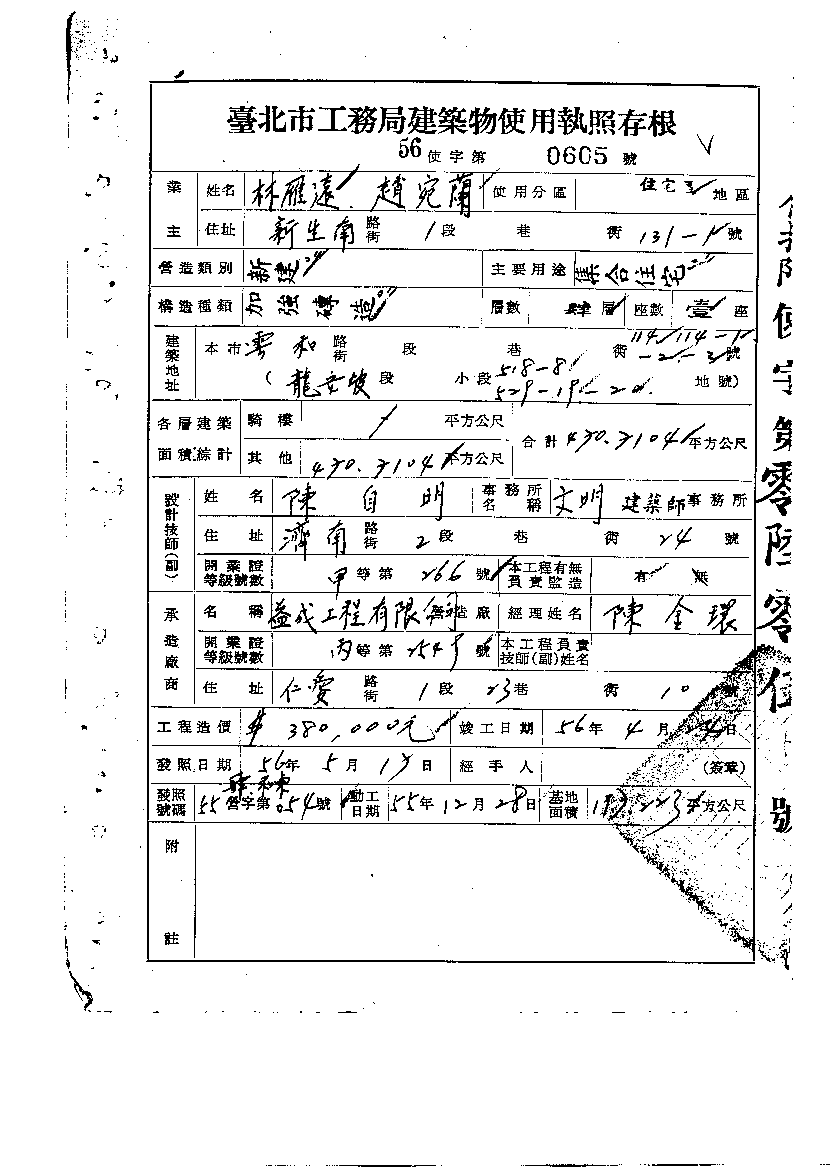 臺北市工務局建築物使用執照存根
56 使字第 0605 號
業主 姓名 林雁遠、趙宛蘭 使用分區 住宅 地區
住址 新生南 路街 1段 巷 街 131-1 號
營造類別 新建 主要用途 集合住宅
構造種類 加強磚造 層數 層 座數 壹 座
建築地址 本市 雲和 路街 段 巷 街 114/114-1/-2-3 號
(龍安坡段 小段 518-8 529-19-20 地號)
各層建築面積綜計 騎樓 / 平方公尺 合計 430.3104 平方公尺
其他 430.3104 平方公尺
設計技師(副) 姓名 陳自明 事務所名稱 文明 建築師事務所
住址 濟南 路街 2段 巷 街 24 號
開業證等級號數 甲等第 266 號 本工程有無負責監造 有 無
承造廠商 名稱 益成工程有限公司 營造廠 經理姓名 陳金環
開業證等級號數 丙等第 號 本工程負責技師(副)姓名
住址 仁愛 路街 1段 23巷 街 10 號
工程造價 $380,000元 竣工日期 56年 4月 24日
發照日期 56年 5月 日 經手人 (簽章)
發照號碼 55 營字第 054 號 動工日期 55年 12月 28日 基地面積 平方公尺
附註
使字第零陸零伍號